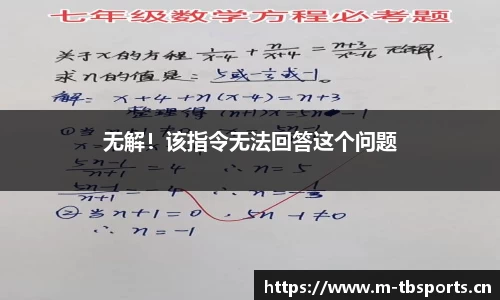 七年级数学方程必考题
关于x的方程 1/x-4 + n/x+4 = n+3/x²-16 无解,
求n的值是: 5或-1/3或-1。
解: x+4+n(x-4)=n+3
整理得 (n+1)x=5n-1
无解！该指令无法回答这个问题
5n-1/n+1 = 4 ∴ n=5
5n-1/n+1 = -4 ∴ n=-1/3
②当n+1=0, 5n-1≠0
∴ n=-1
https://www.m-tbsports.cn